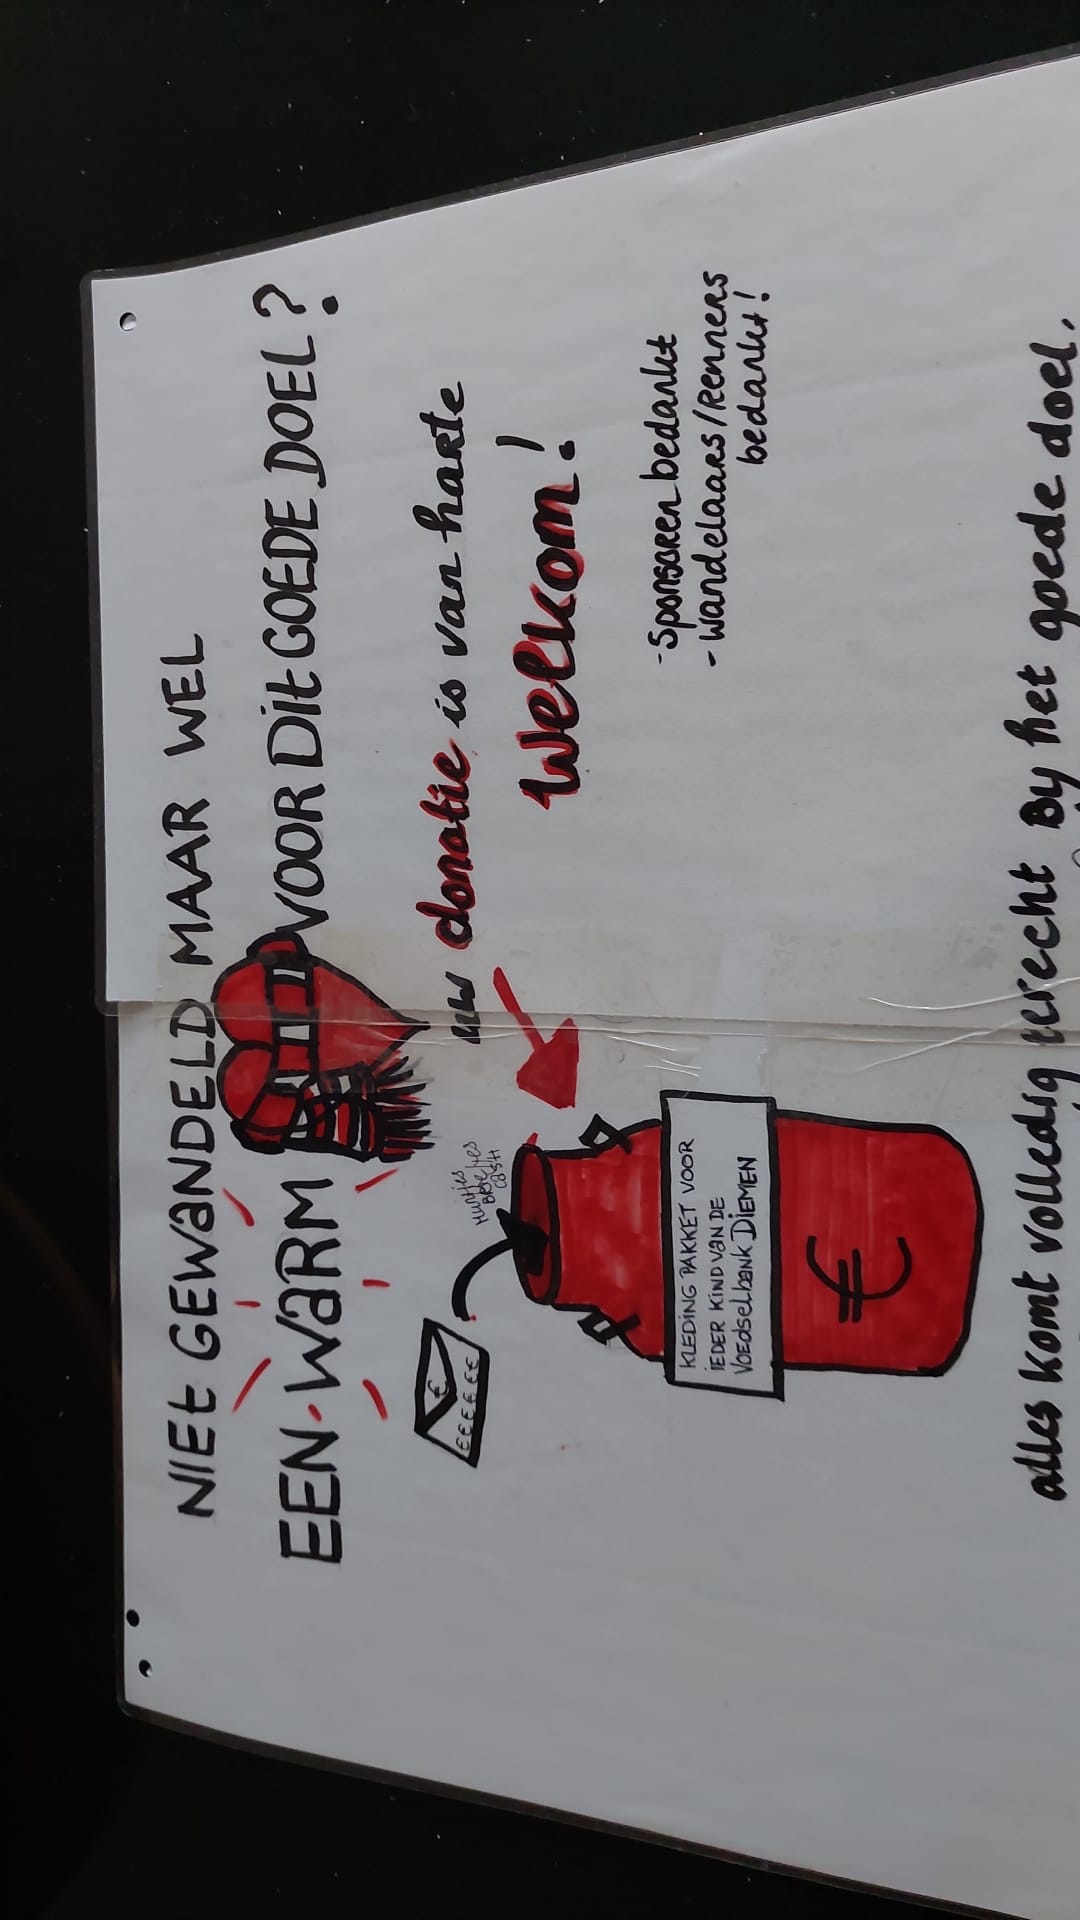 NIEt GEWANDELD MAAR WEL
EEN WARM VOOR Dit GOEDE DOEL?
uw donatie is van harte
welkom!
Muntjes
Briefjes
Cash
€
€€€€€€
KLEDING PAKKET VOOR
IEDER KIND VAN DE
VOEDSELBANK DIEMEN
€
- Sponsoren bedankt
- wandelaars/Renners
bedankt!
alles komt volledig terecht By het goede doel.